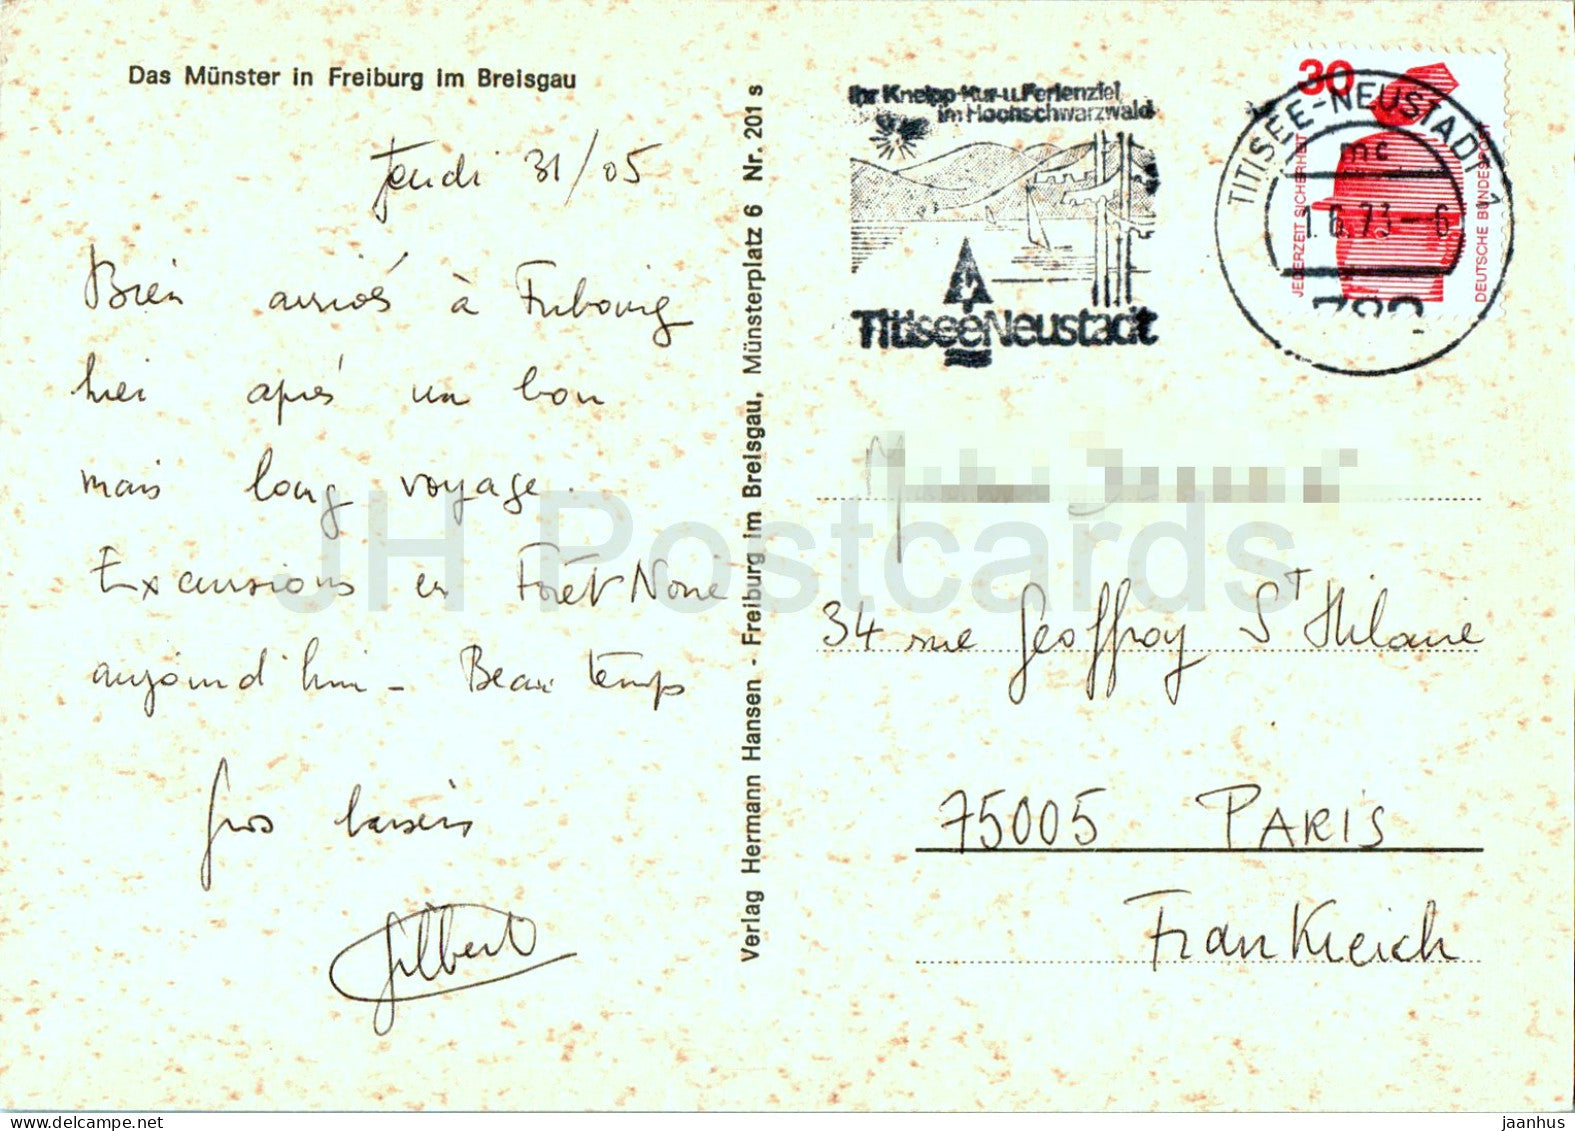 Das Münster in Freiburg im Breisgau
Jeudi 31/05
Bien arrivés à Fribourg
hier après un bon
mais long voyage.
Excursions en Forêt Noire
aujourd'hui - Beau temps
Gros baisers
Gilbert
Verlag Hermann Hansen - Freiburg im Breisgau, Münsterplatz 6 Nr. 201 s
Ihr Kneipp-Kur-u.Ferienziel
im Hochschwarzwald
TitiseeNeustadt
30
JEDERZEIT SICHERHEIT
DEUTSCHE BUNDESPOST
TITISEE-NEUSTADT 1
mc
1.6.73-6
782
34 rue Geoffroy St Hilaire
75005 PARIS
Frankreich
JH Postcards
delcampe.net
jaanhus